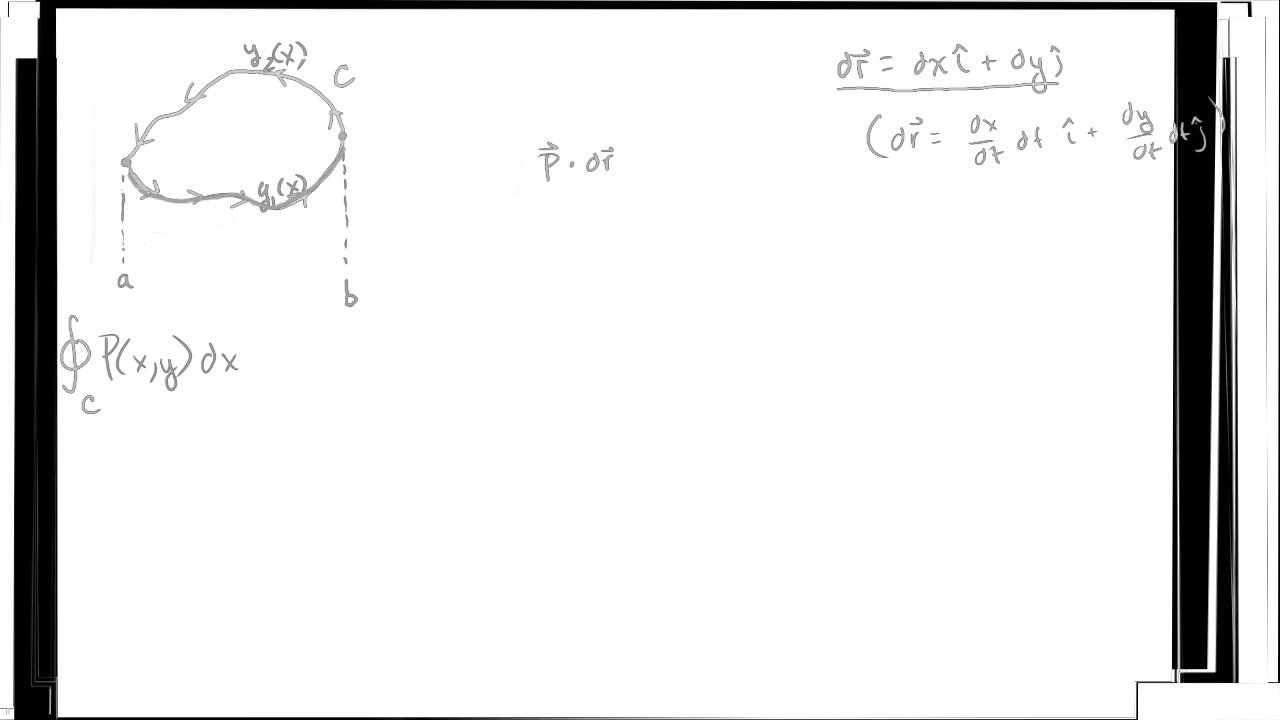 y₂(x)
C
y₁(x)
a
b
∮_C P(x,y) dx
p⃗ · dr⃗
dr⃗ = dx î + dy ĵ
(dr⃗ = dx/dt dt î + dy/dt dt ĵ)